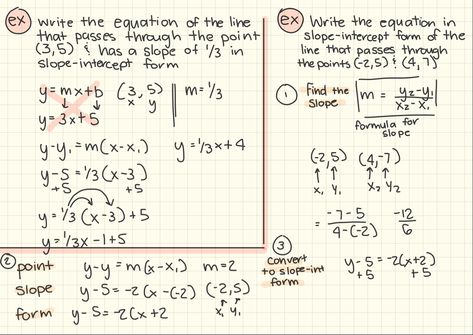 ex Write the equation of the line
that passes through the point
(3,5) & has a slope of 1/3 in
slope-intercept form
y = mx+b (3,5) m = 1/3
x y
y = 3x+5
y-y₁ = m(x-x₁) y = 1/3 x+4
y-5 = 1/3(x-3)
+5 +5
y = 1/3 (x-3)+5
y = 1/3x -1+5
ex Write the equation in
slope-intercept form of the
line that passes through
the points (-2,5) & (4,7)
1 Find the slope
m = y₂-y₁ / x₂-x₁
formula for
slope
(-2,5) (4,-7)
x₁ y₁ x₂ y₂
= -7-5 / 4-(-2) -12 / 6
2 point y-y = m(x-x₁) m=2
slope y-5 = -2(x-(-2) (-2,5)
x₁ y₁
form y-5 = -2(x+2
3 convert
to slope-int
form
y-5 = -2(x+2)
+5 +5